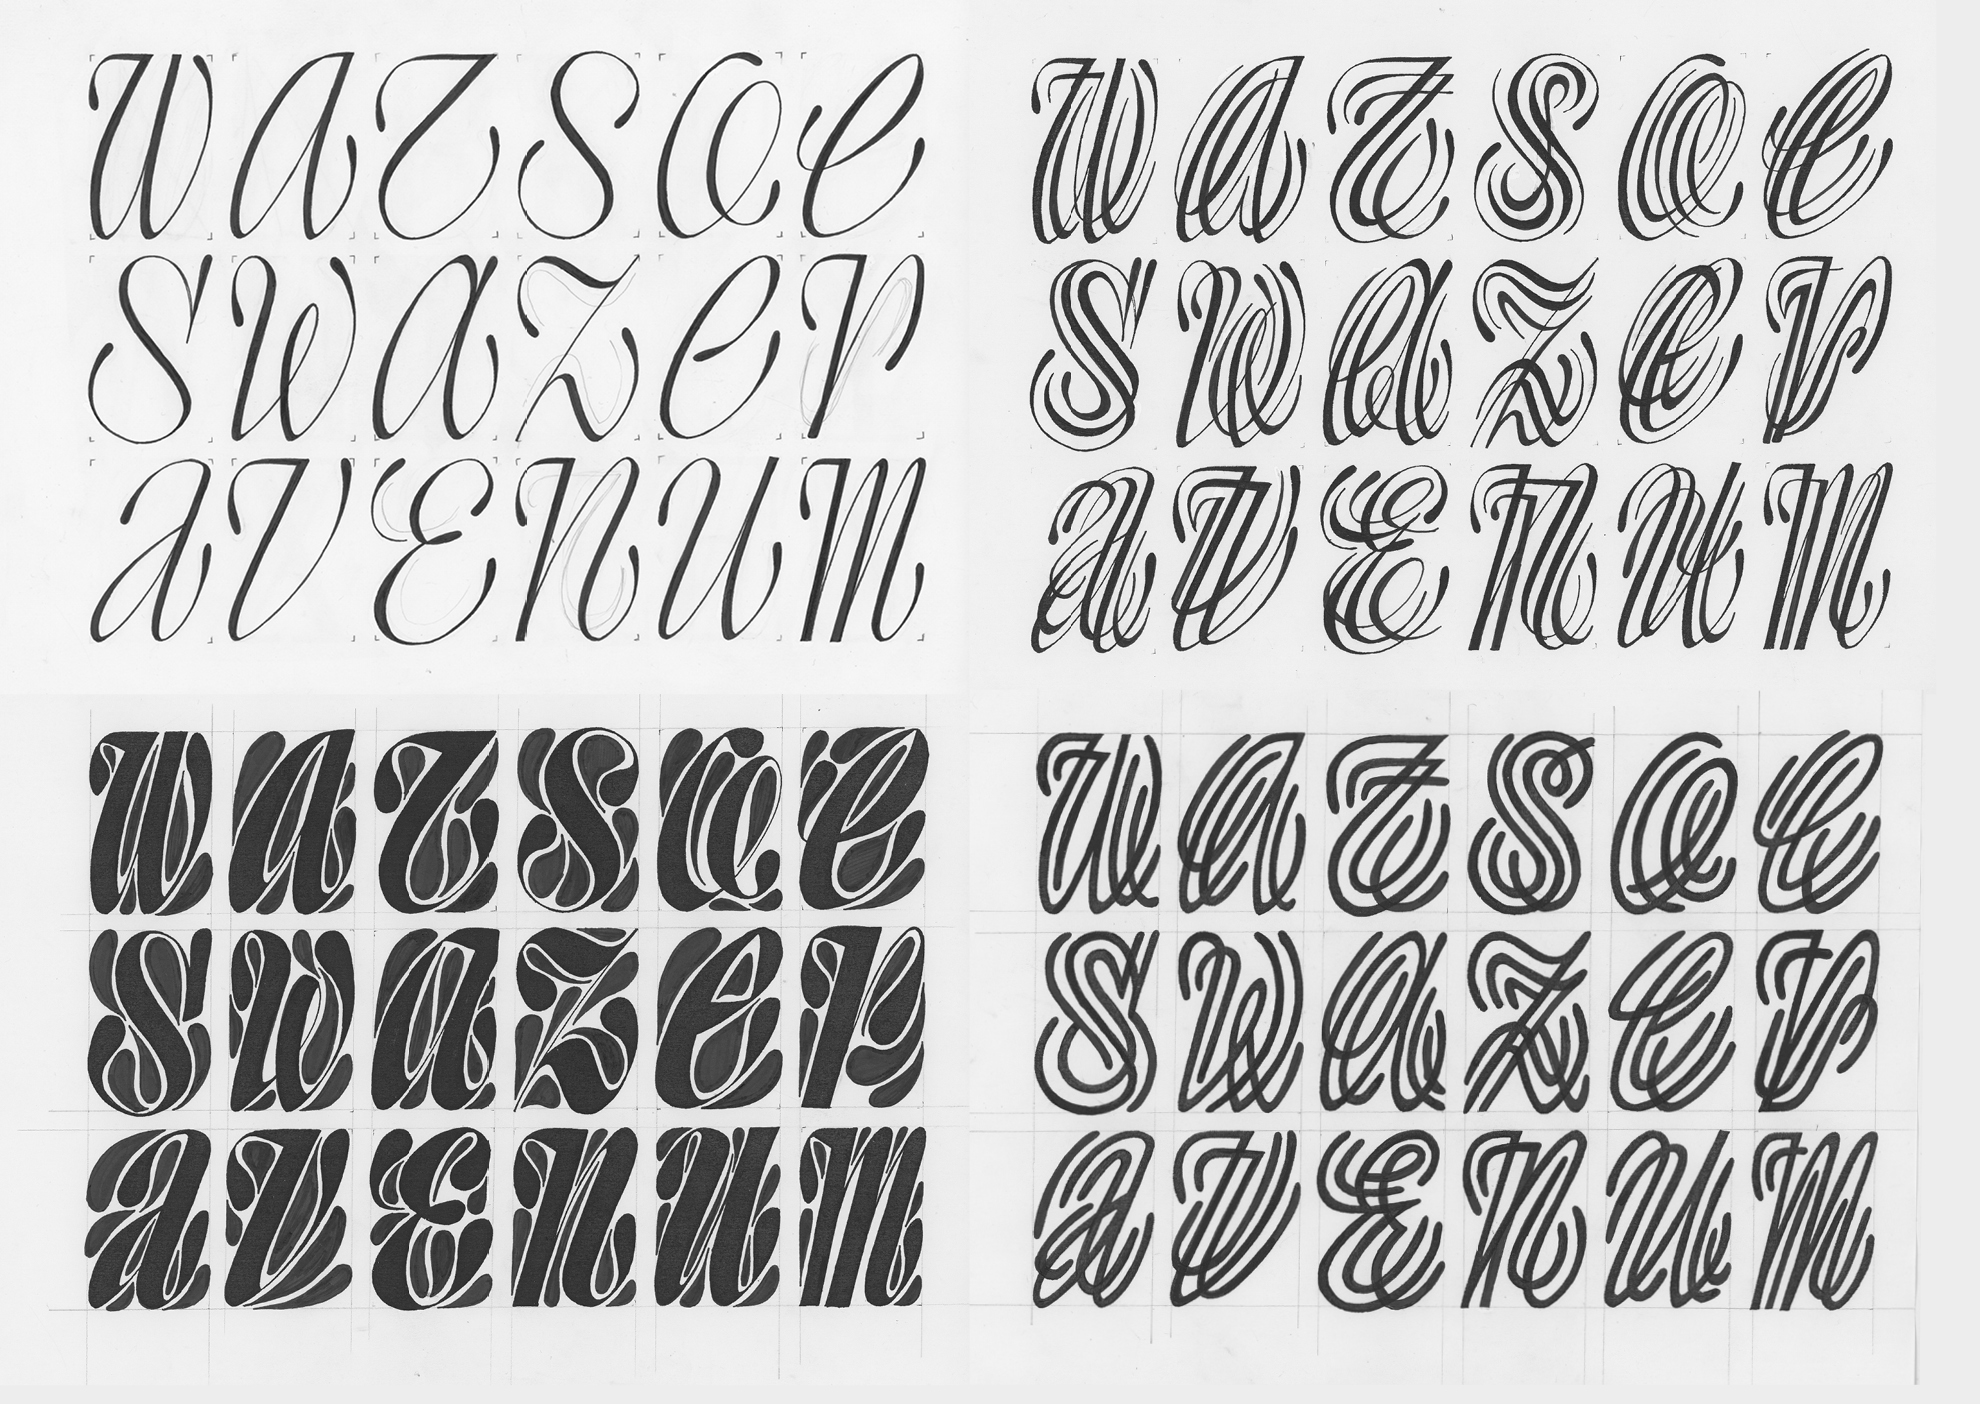 WATSCE
SWAZER
AVENUM
WATSCE
SWAZER
AVENUM
WATSCE
SWAZER
AVENUM
WATSCE
SWAZER
AVENUM